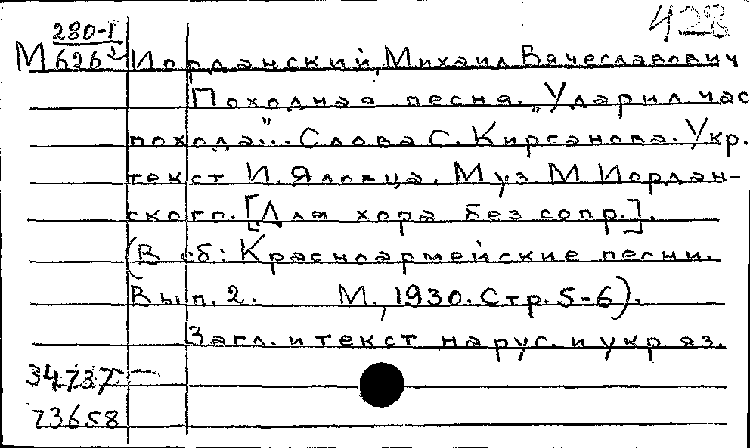 428
280-1
М 626 Иорданский, Михаил Вячеславович
Походная песня. „Ударил час
похода"... Слова С. Кирсанова. Укр.
текст И. Яловца. Муз. М. Иордан-
ского. [Для хора без сопр.].
(В сб: Красноармейские песни.
Вып. 2. М., 1930. Стр. 5-6).
Загл. и текст на рус. и укр. яз.
34737
73658